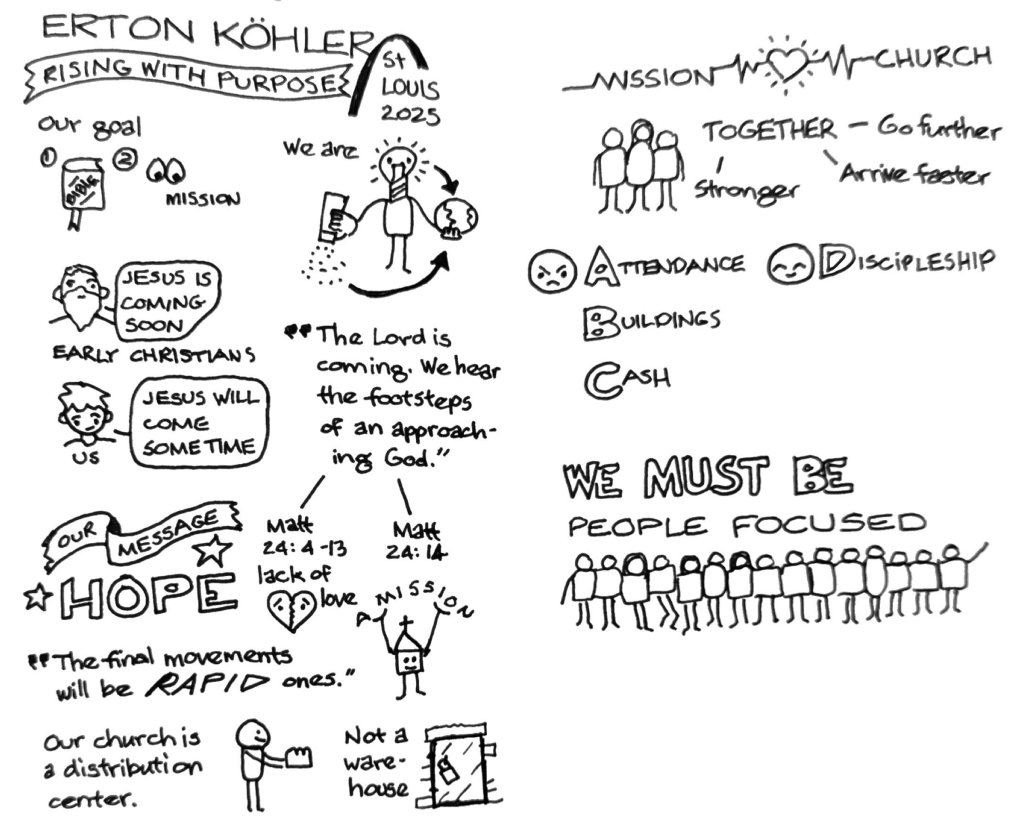 ERTON KÖHLER
RISING WITH PURPOSE
St
LOUIS
2025
our goal
① BIBLE
② MISSION
We are
JESUS IS
COMING
SOON
EARLY CHRISTIANS
JESUS WILL
COME
SOMETIME
US
"The Lord is
coming. We hear
the footsteps
of an approach-
ing God."
Matt
24:4-13
lack of
love
Matt
24:14
A MISSION
OUR MESSAGE
HOPE
"The final movements
will be RAPID ones."
Our church is
a distribution
center.
Not a
ware-
house
MISSION CHURCH
TOGETHER - Go further
Stronger
Arrive faster
ATTENDANCE
BUILDINGS
CASH
DISCIPLESHIP
WE MUST BE
PEOPLE FOCUSED